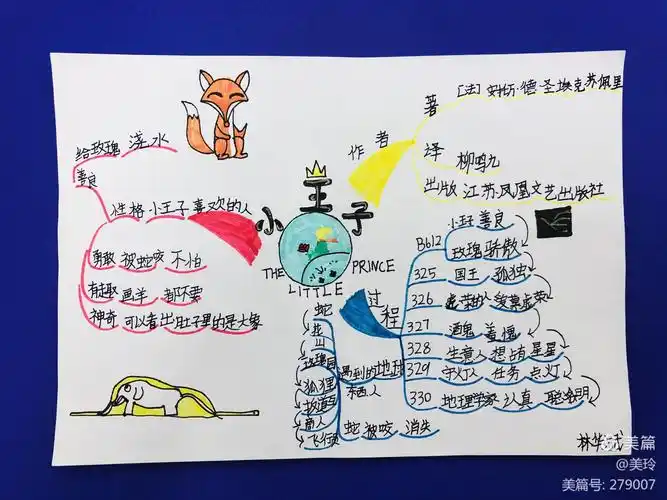 小王子
THE LITTLE PRINCE
作者
著 [法]安托·德·圣埃克苏佩里
译 柳鸣九
出版 江苏凤凰文艺出版社
给玫瑰 浇水
善良
性格 小王子喜欢的人
勇敢 被蛇咬 不怕
有趣 画羊 都不要
神奇 可以看出肚子里的是大象
过程
B612 小王子 善良
玫瑰 骄傲
325 国王 孤独
326 爱虚荣的人
327 酒鬼 羞愧
328 生意人 想占有 星星
329 守灯人 任务 点灯
330 地理学家 认真 聪明
遇到的地球
东西人
蛇
花
山
玫瑰园
狐狸
扳道工
商人
飞行员
蛇 被咬 消失
美篇
@美玲
美篇号: 279007